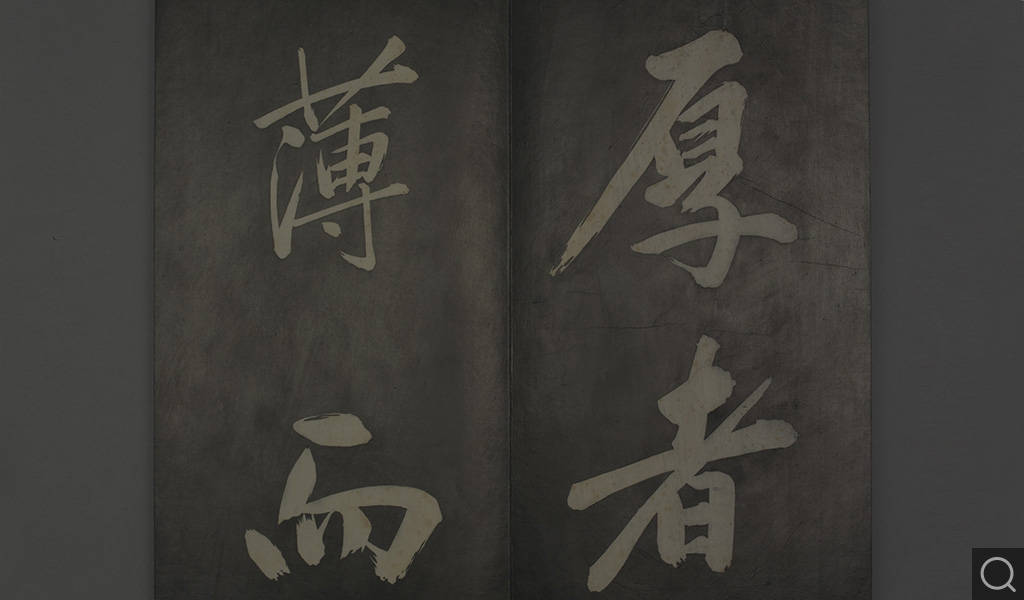 厚者
薄而